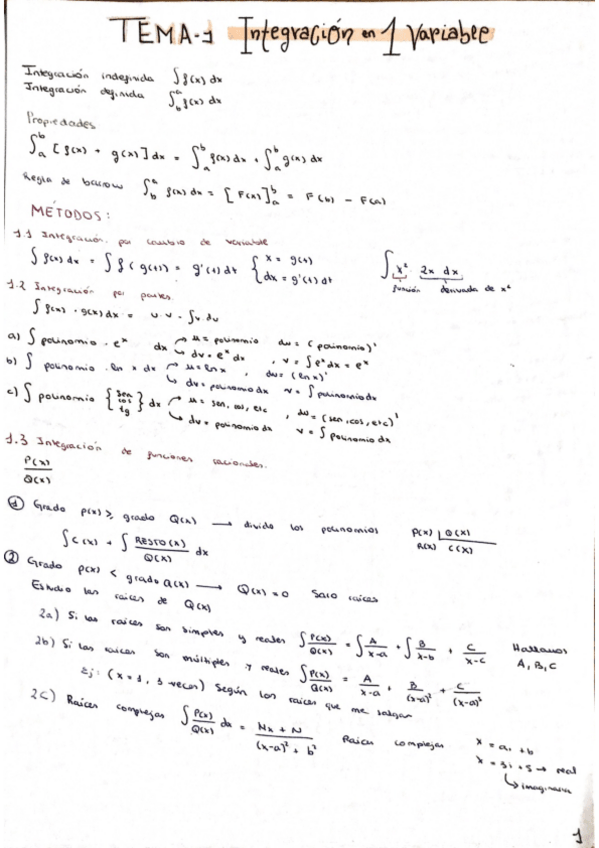 TEMA-1 Integración en 1 Variable
Integración indefinida ∫f(x) dx
Integración definida ∫_b^a f(x) dx
Propiedades
∫_a^b [f(x) + g(x)] dx = ∫_a^b f(x) dx + ∫_a^b g(x) dx
Regla de barrow ∫_b^a f(x) dx = [F(x)]_a^b = F(b) - F(a)
MÉTODOS:
1.1 Integración por cambio de variable
∫f(x) dx = ∫f(g(t)) = g'(t) dt { x = g(t) dx = g'(t) dt
∫ x² 2x dx
función derivada de x²
1.2 Integración por partes.
∫f(x) · g(x) dx = u·v - ∫v du
a) ∫ polinomio · eˣ dx → u = polinomio du = (polinomio)'
→ dv = eˣ dx , v = ∫eˣ dx = eˣ
b) ∫ polinomio · ln x dx → u = ln x , du = (ln x)'
→ dv = polinomio dx v = ∫ polinomio dx
c) ∫ polinomio { sen cos tg } dx → u = sen, cos, etc , du = (sen, cos, etc)'
→ dv = polinomio dx v = ∫ polinomio dx
1.3 Integración de funciones racionales.
P(x)/Q(x)
① Grado p(x) ≥ grado Q(x) → divido los polinomios P(x) | Q(x)
R(x) C(x)
∫C(x) + ∫ RESTO(x)/Q(x) dx
② Grado p(x) < grado Q(x) → Q(x) = 0 Saco raíces
Estudio las raíces de Q(x)
2a) Si las raíces son simples y reales ∫P(x)/Q(x) = ∫A/(x-a) + ∫B/(x-b) + C/(x-c) Hallamos A, B, C
2b) Si las raíces son múltiples y reales ∫P(x)/Q(x) = A/(x-a) + B/(x-a)² + C/(x-a)³
Ej: (x = 1, 3 veces) Según las raíces que me salgan
2C) Raíces complejas ∫P(x)/Q(x) dx = Mx + N/(x-a)² + b² Raíces complejas x = ai + b
x = 3i + 5 → real
→ imaginaria
1